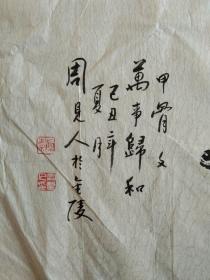 甲骨文
萬事歸和
己丑年
夏月
周見人於金陵